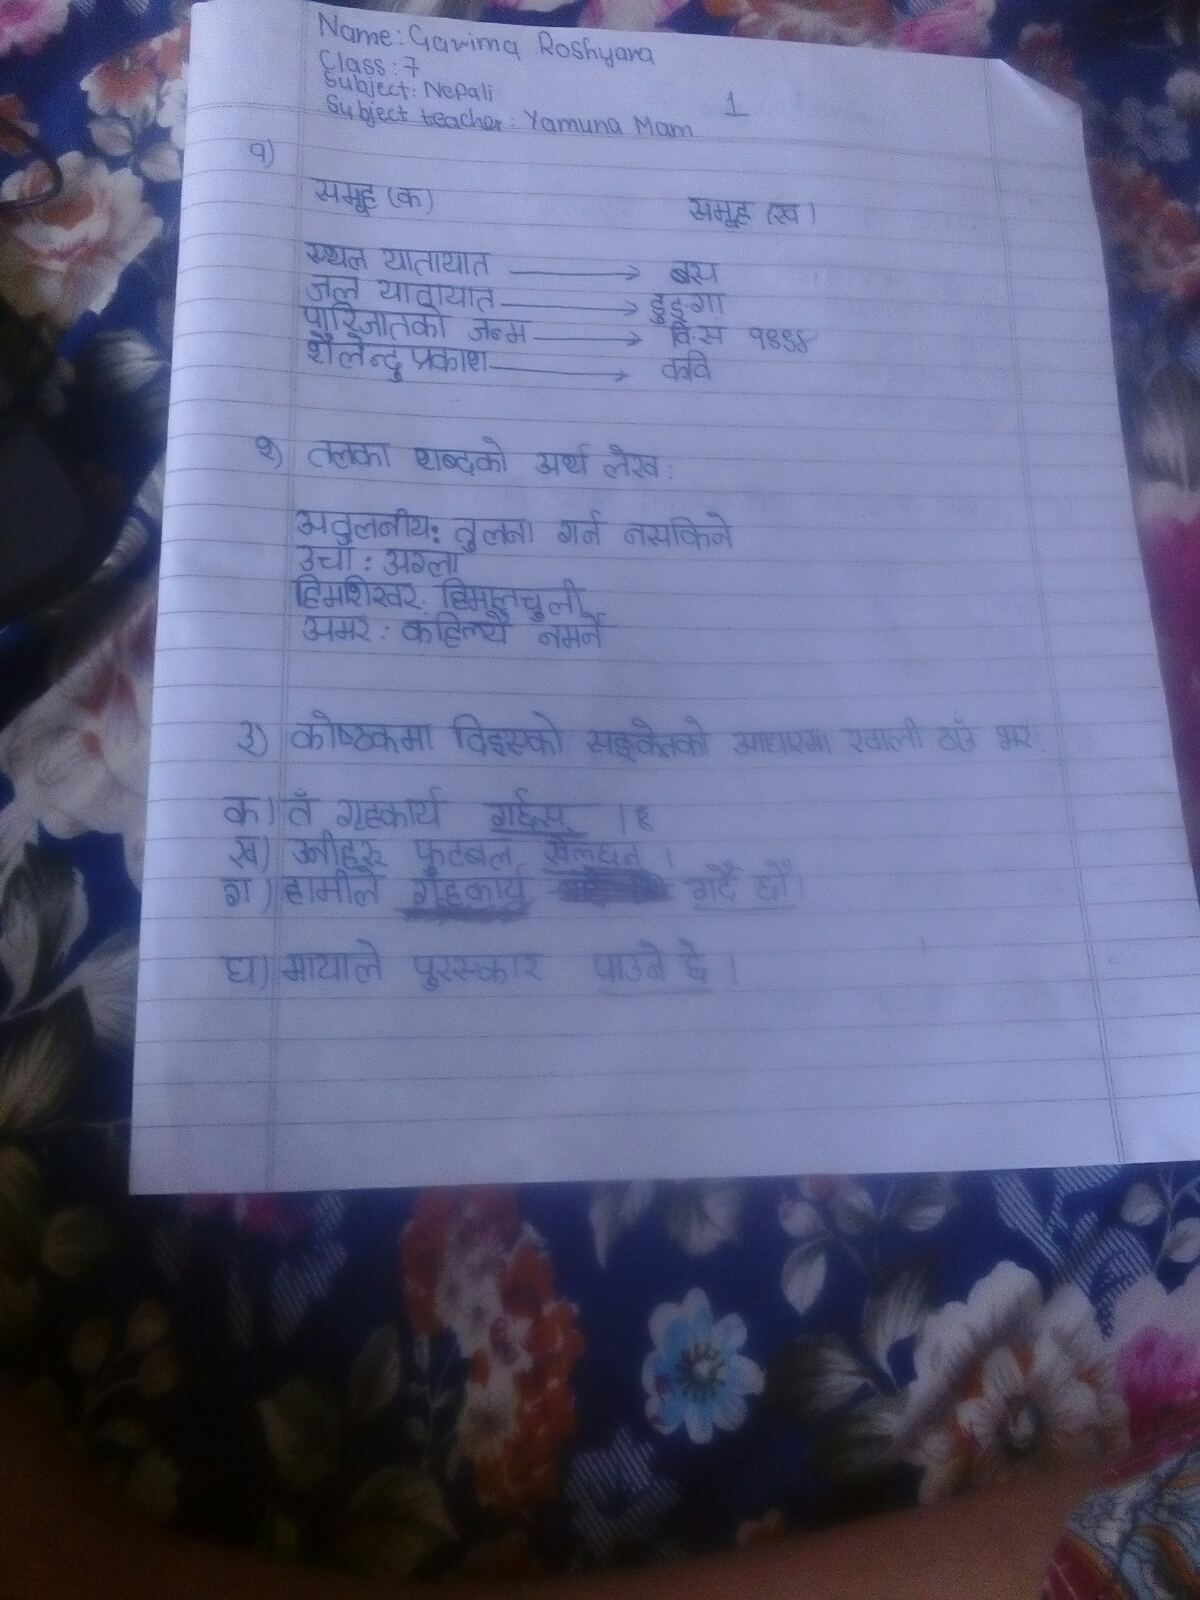 Name: Garima Roshyara
Class: 7
Subject: Nepali
Subject teacher: Yamuna Mam
1
१)
समूह (क) समूह (ख)
स्थल यातायात → बस
जल यातायात → डुङ्गा
पारिजातको जन्म → वि.स १९९४
शैलेन्दु प्रकाश → कवि
२) तलका शब्दको अर्थ लेख:
अतुलनीय: तुलना गर्न नसकिने
उचा: अग्ला
हिमशिखर: हिमालचुली
अमर: कहिल्यै नमर्ने
३) कोष्ठकमा दिइएको सङ्केतको आधारमा खाली ठाँउ भर:
क) तँ गृहकार्य गर्छस् ।
ख) उनीहरू फुटबल खेल्छन् ।
ग) हामीले गृहकार्य गर्दै छौँ।
घ) मायाले पुरस्कार पाउने छे ।